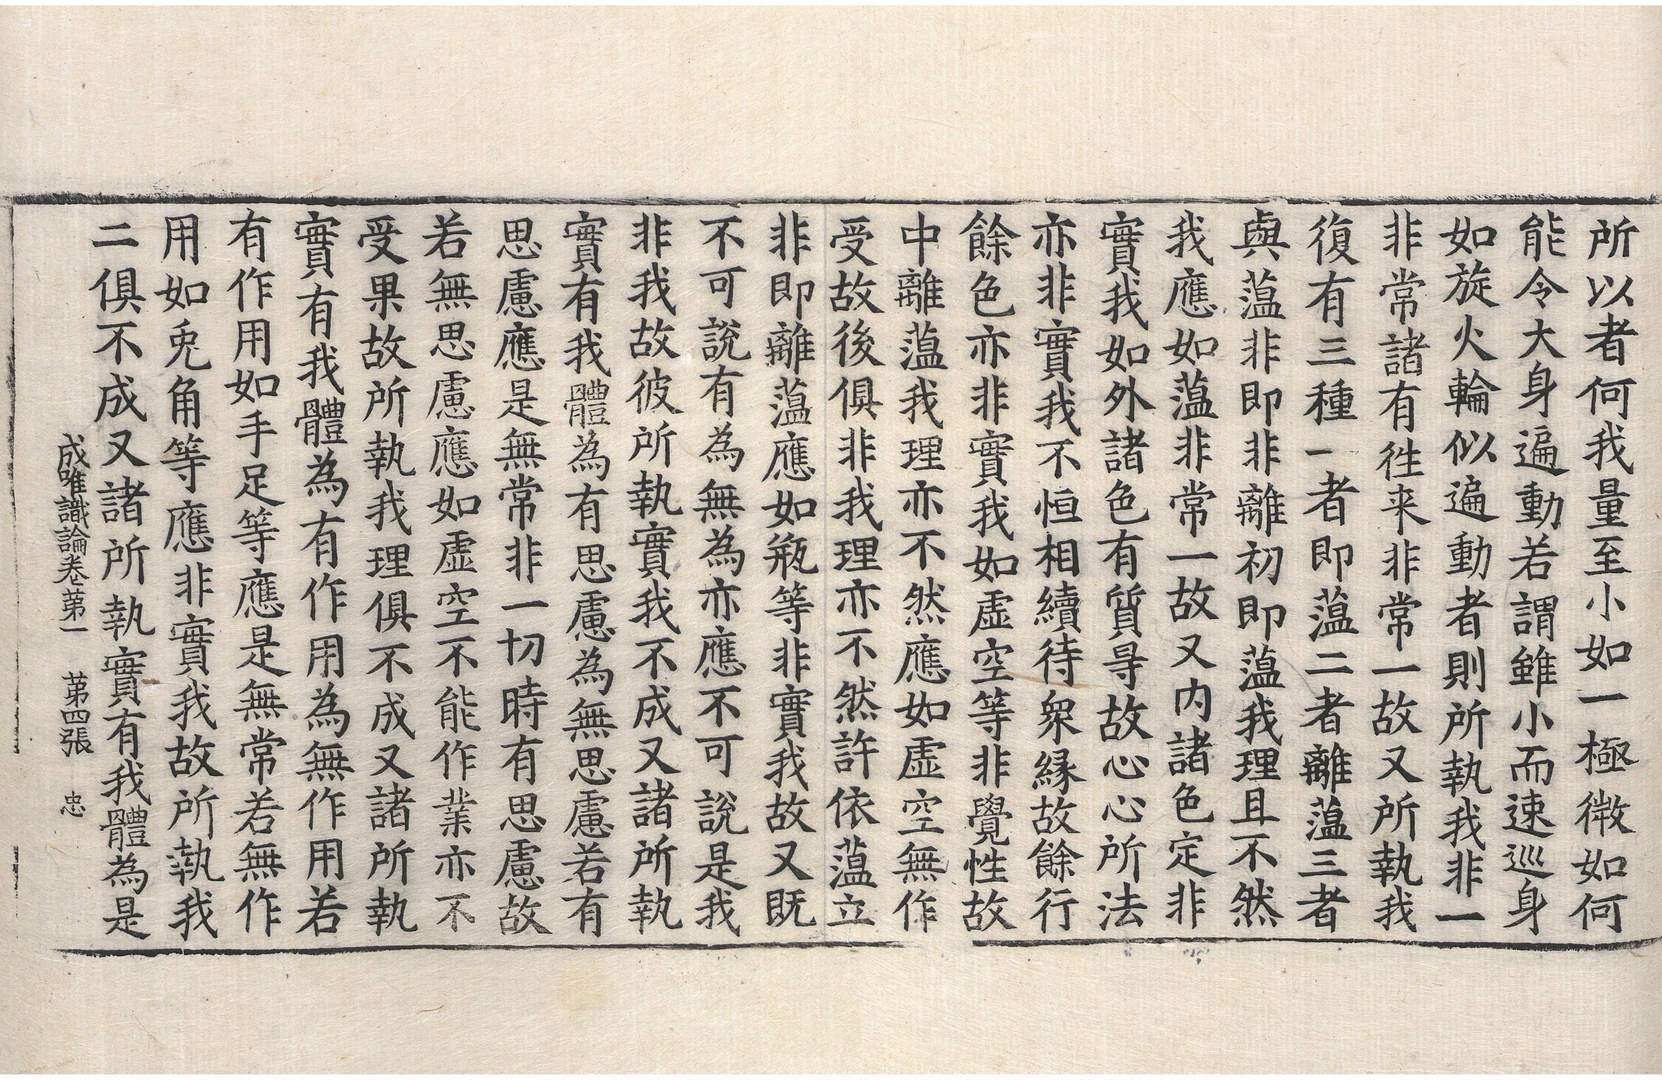 所以者何我量至小如一極微如何
能令大身遍動若謂雖小而速巡身
如旋火輪似遍動者則所執我非一
非常諸有徃来非常一故又所執我
復有三種一者即薀二者離薀三者
與薀非即非離初即薀我理且不然
我應如薀非常一故又内諸色定非
實我如外諸色有質㝵故心心所法
亦非實我不恒相續待衆縁故餘行
餘色亦非實我如虚空等非覺性故
中離薀我理亦不然應如虚空無作
受故後俱非我理亦不然許依薀立
非即離薀應如瓶等非實我故又既
不可說有為無為亦應不可說是我
非我故彼所執實我不成又諸所執
實有我體為有思慮為無思慮若有
思慮應是無常非一切時有思慮故
若無思慮應如虚空不能作業亦不
受果故所執我理俱不成又諸所執
實有我體為有作用為無作用若
有作用如手足等應是無常若無作
用如兎角等應非實我故所執我
二俱不成又諸所執實有我體為是
成唯識論卷苐一　苐四張　忠